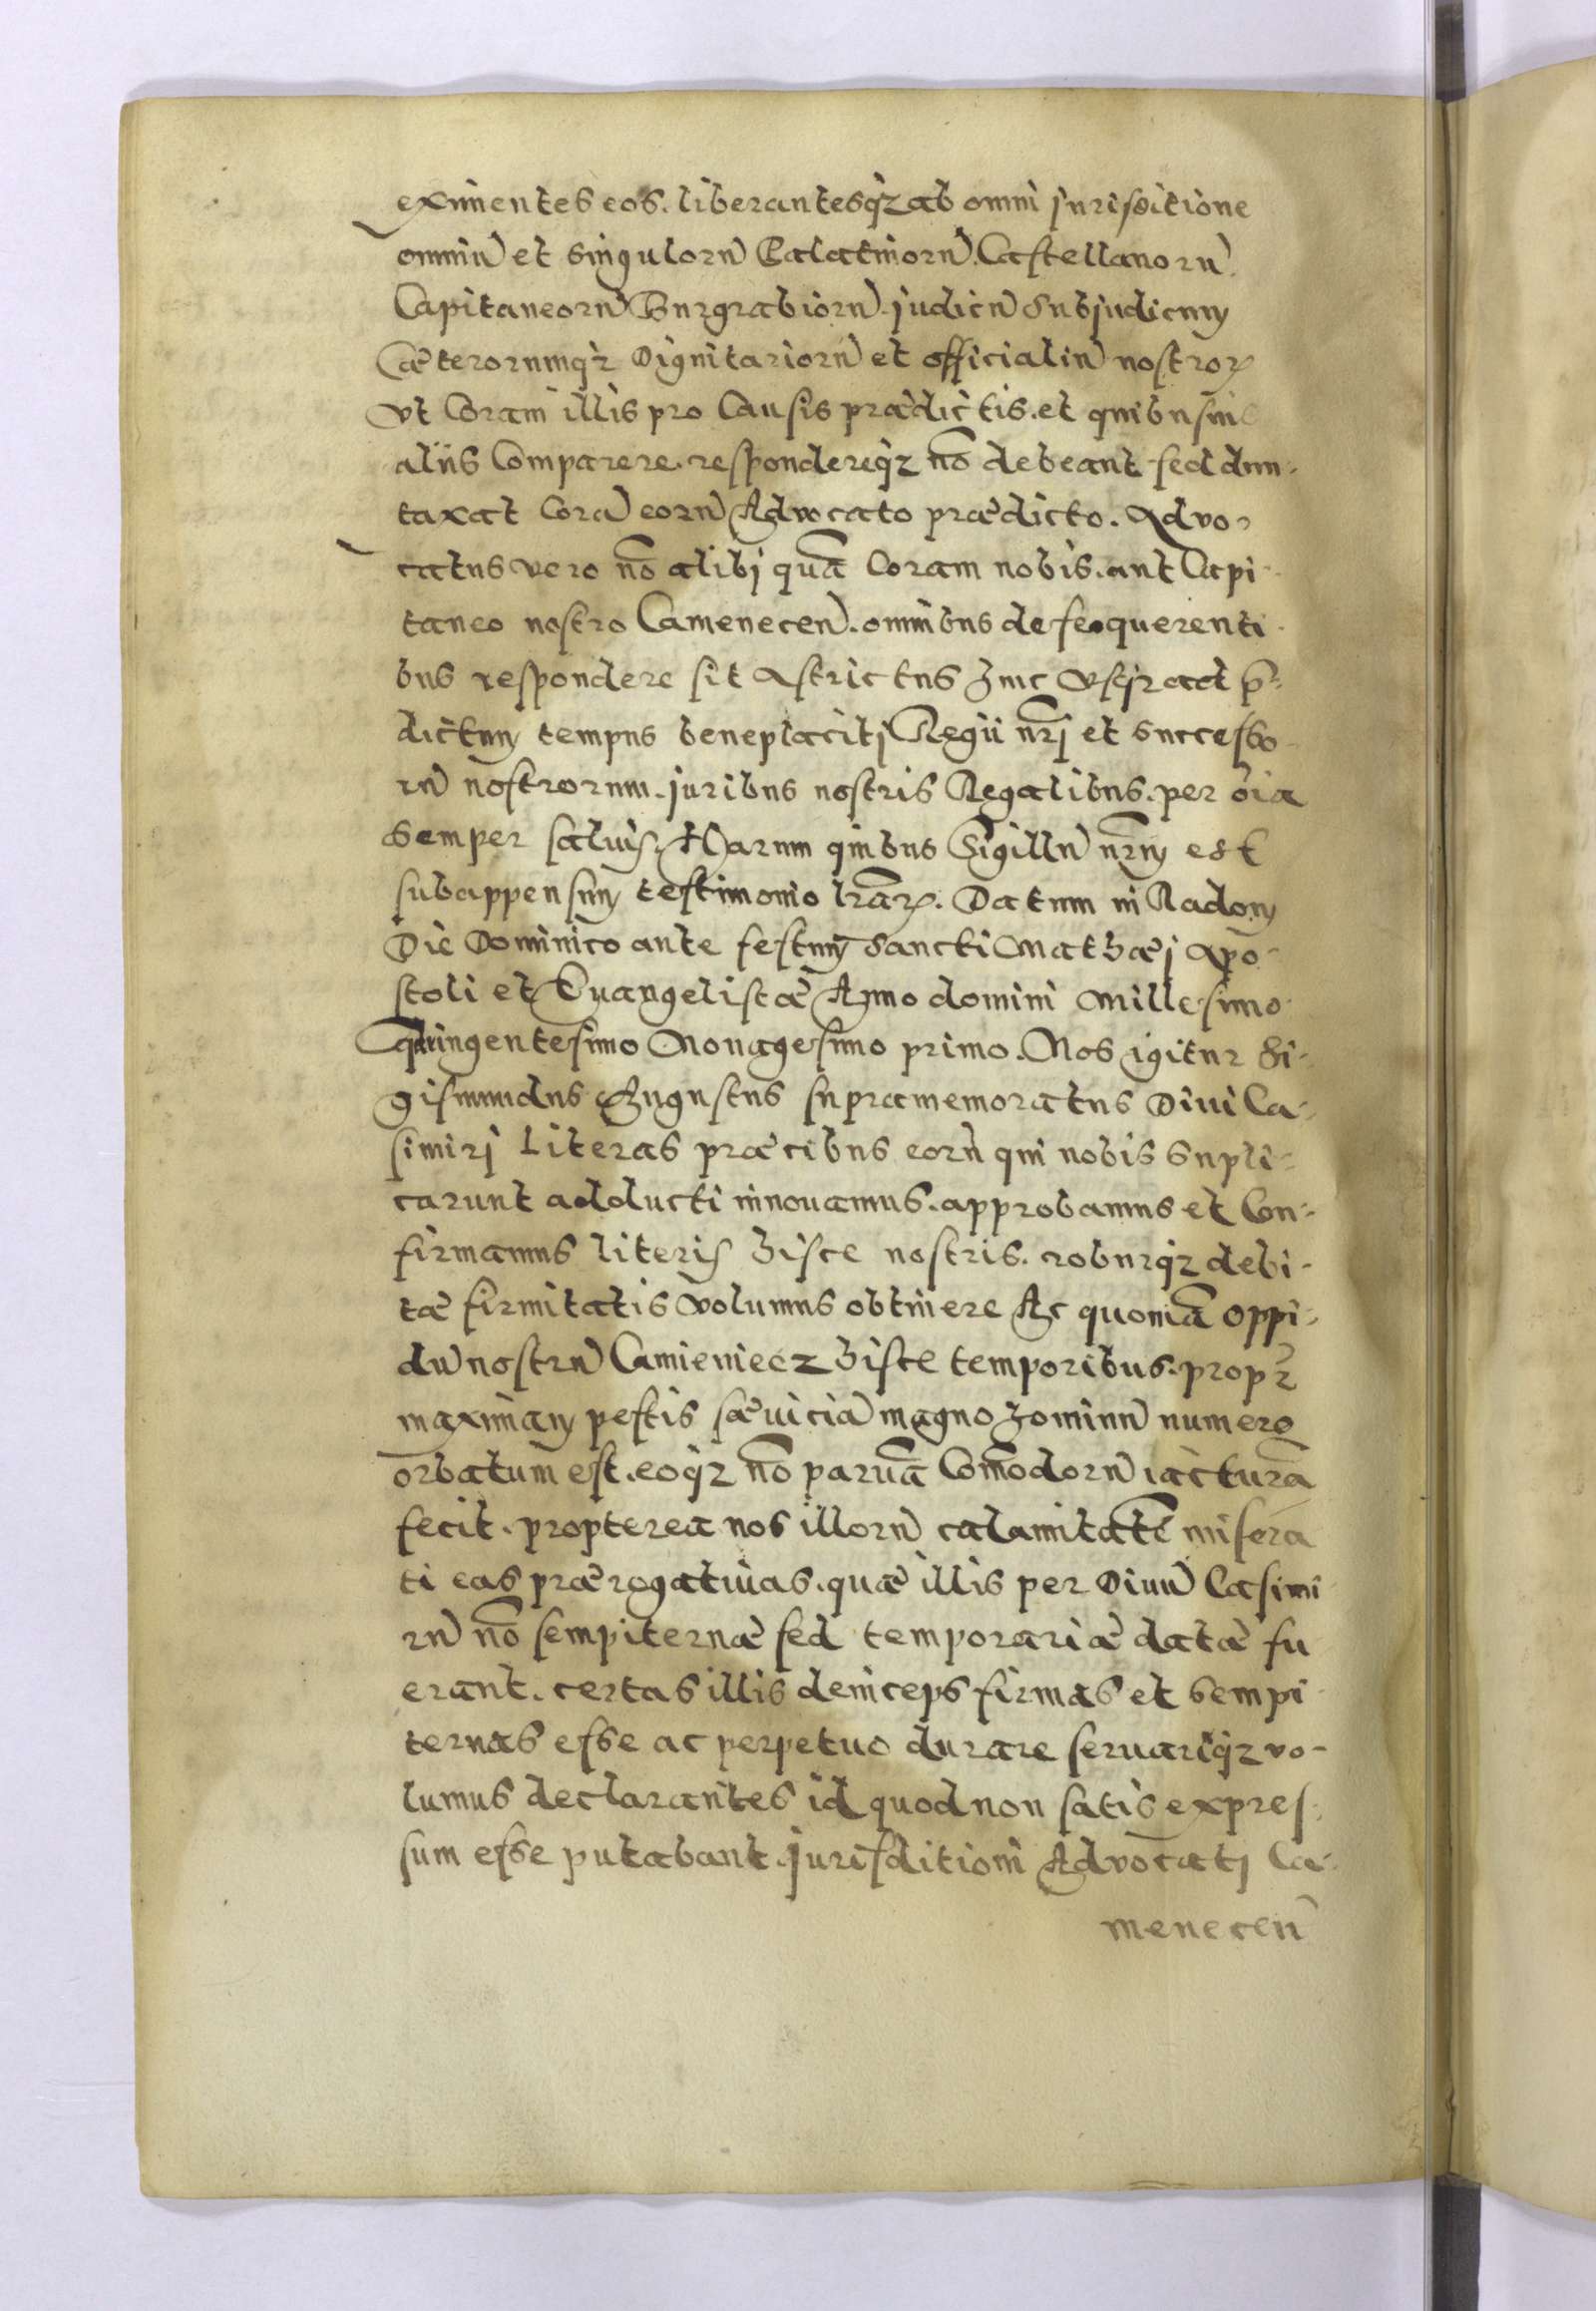 eximentes eos. liberantesqz ab omni jurisditione
omniũ et singulorũ Palatinorũ. Castellanorũ.
Capitaneorũ Burgrabiorũ. judicũ Subjudicum
Cæterorumqz Dignitariorũ et officialiũ nostrorꝝ
Vt Coram illis pro Causis prædictis. et quibusuis
alijs Comparere. respondereqz nõ debeant sed dun-
taxat Corã eorũ Advocato prædicto. Advo-
catus vero nõ alibj quã Coram nobis. aut Capi-
taneo nostro Camenecen̄. omnibus de se querenti
bus respondere sit astrictus hinc vsqz ad p̄-
dictum tempus beneplacitj Regij nr̄j et successo-
rũ nostrorum. juribus nostris Regalibus. per õia
semper saluis. Harum quibus Sigillũ nr̄m est
subappensum testimonio lr̄arꝝ. Datum in Radom
Die Dominico ante festum Sancti Mathæj Apo-
stoli et Euangelistæ Anno domini Millesimo
quingentesimo Nonagesimo primo. Nos igitur Si-
gismundus Augustus supramemoratus Diui Ca-
simirj Literas præcibus eorũ qui nobis supli-
carunt adducti innouamus. approbamus et Con-
firmamus literis hisce nostris. roburqz debi-
tæ firmitatis volumus obtinere Ac quoniã oppi-
dũ nostrũ Camieniecz hisce temporibus. propr̃
maximam pestis sæuiciã magno hominũ numero
orbatum est. eoqz nõ paruã Com̄odorũ iacturã
fecit. propterea nos illorũ calamitatẽ misera
ti eas prærogatiuas. quæ illis per Diuũ Casimi
rũ nõ sempiternæ sed temporariæ datæ fu
erant. certas illis deinceps firmas et sempi
ternas esse ac perpetuo durare seruariqz vo-
lumus declarantes id quod non satis expres-
sum esse putabant. jurisditioni Advocatj Ca-
menecen̄